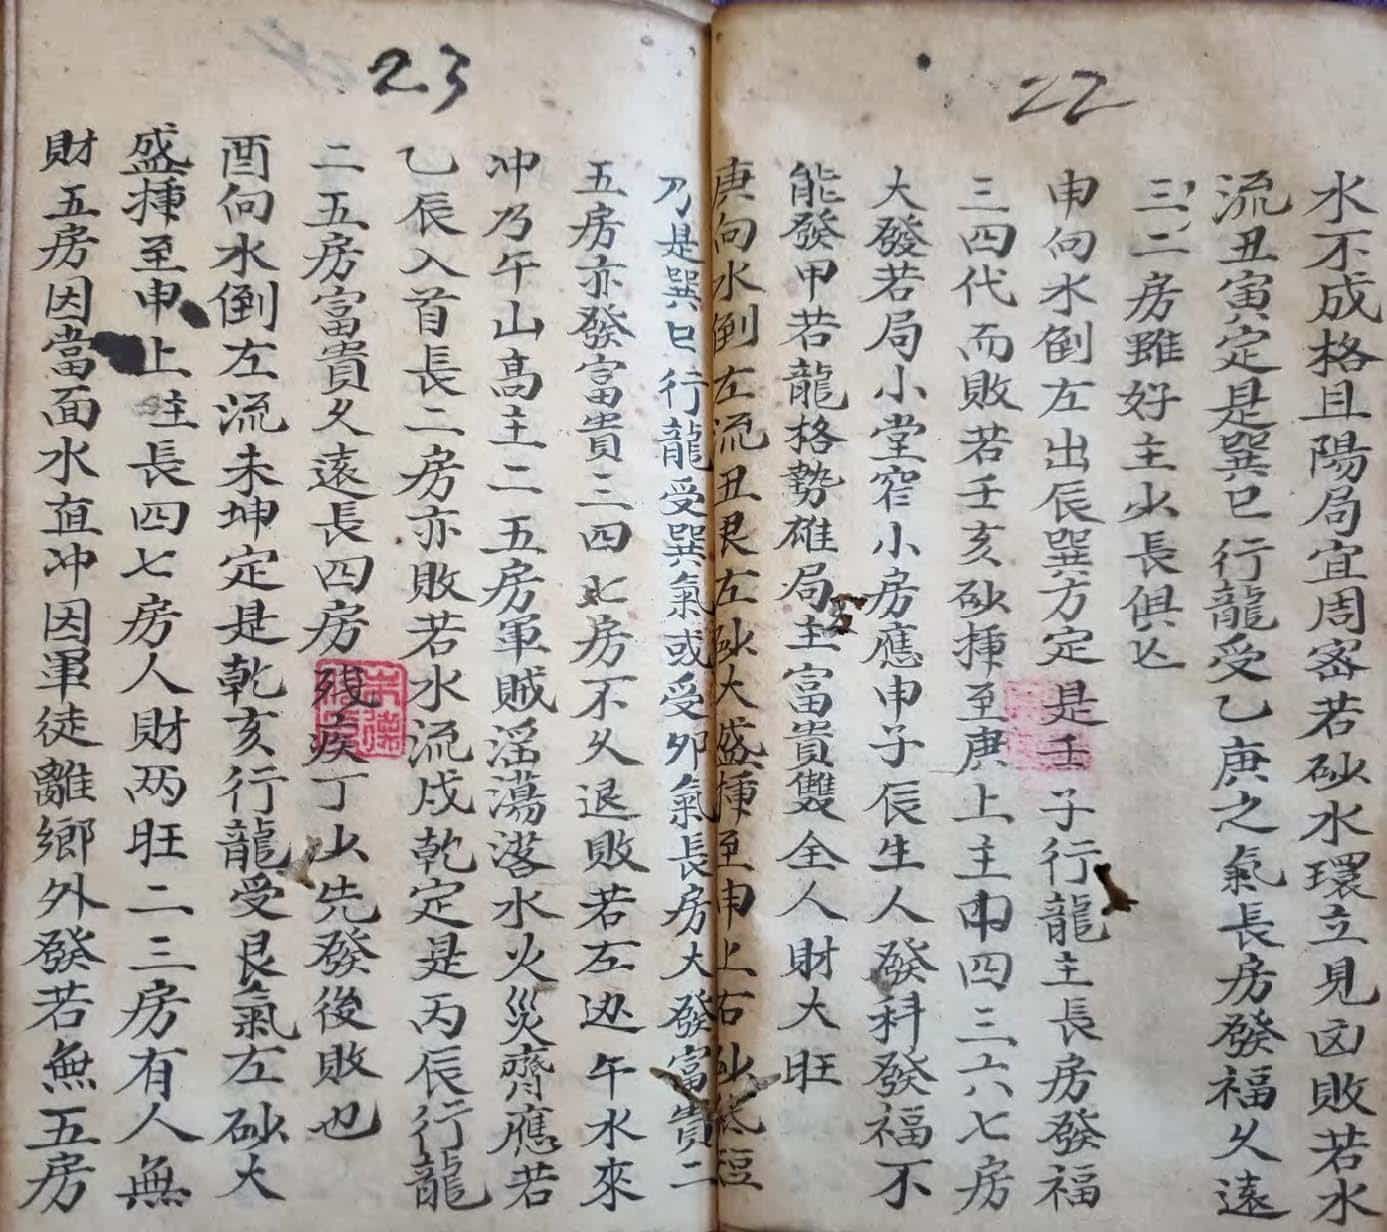 22
水不成格且陽局宜周密若砂水環立見凶敗若水
流丑寅定是巽巳行龍受乙庚之氣長房發福久遠
三二房雖好主少長俱亡
申向水倒左出辰巽方定是壬子行龍主長房發福
三四代而敗若壬亥砂揷至庚上主申四三六七房
大發若局小堂窄小房應申子辰生人發科發福不
能發甲若龍格勢雄局主富貴雙全人財大旺
庚向水倒左流丑艮左砂大盛揷至申上右砂低短
23
乃是巽巳行龍受巽氣或受卯氣長房大發富貴二
五房亦發富貴三四七房不久退敗若左边午水來
冲乃午山高主二五房軍賊淫蕩落水火災齊應若
乙辰入首長二房亦敗若水流戌乾定是丙辰行龍
二五房富貴久遠長四房殘疾丁少先發後敗也
酉向水倒左流未坤定是乾亥行龍受艮氣左砂大
盛揷至申上主長四七房人財两旺二三房有人無
財五房因當面水直冲因軍徒離鄉外發若無五房